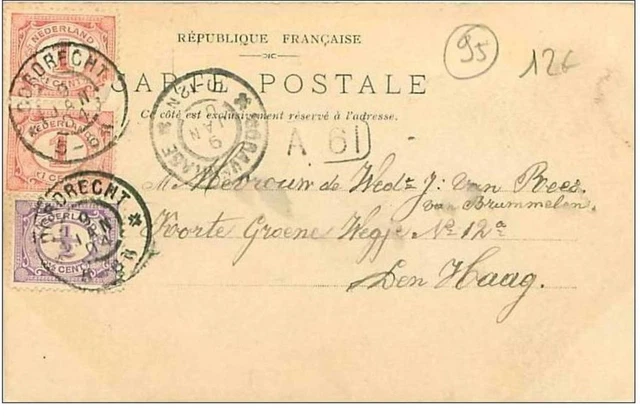 RÉPUBLIQUE FRANÇAISE
CARTE POSTALE
Ce côté est exclusivement réservé à l'adresse.
95
12€
A 61
M Mevrouw de Wedᵉ J: van Rees
van Brummelen
Korte Groene Wegje Nº 12ᵃ
Den Haag.
NEDERLAND
1
CENT
DORDRECHT
NEDERLAND
1
1 CENT
DORDRECHT
NEDERLAND
1/2
CENT